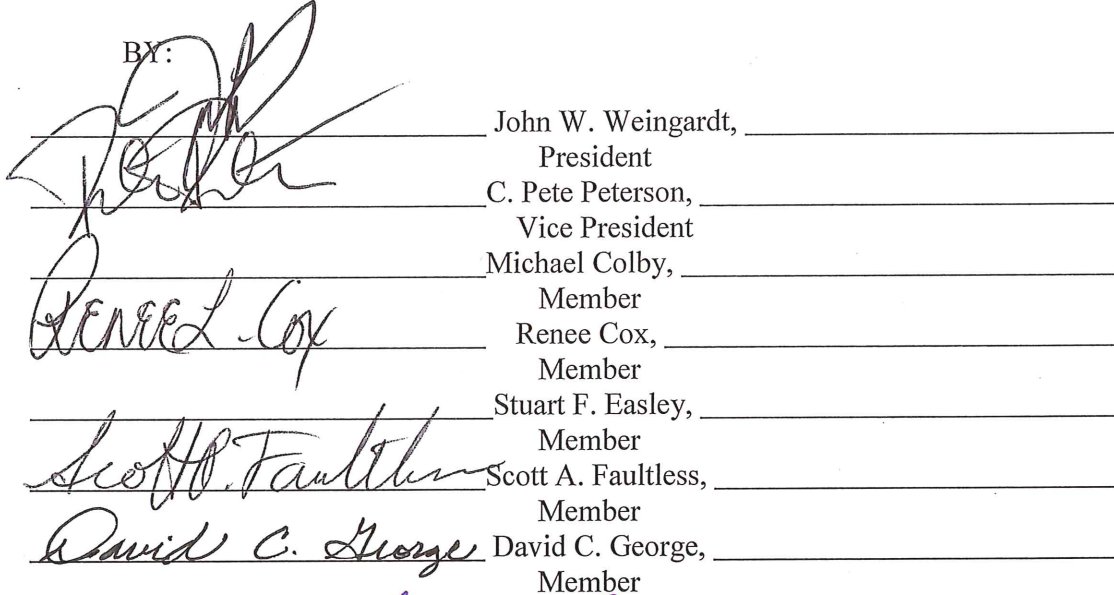 BY:
John W. Weingardt,
President
C. Pete Peterson,
Vice President
Michael Colby,
Member
Renee L. Cox Renee Cox,
Member
Stuart F. Easley,
Member
Scott A. Faultless Scott A. Faultless,
Member
David C. George David C. George,
Member